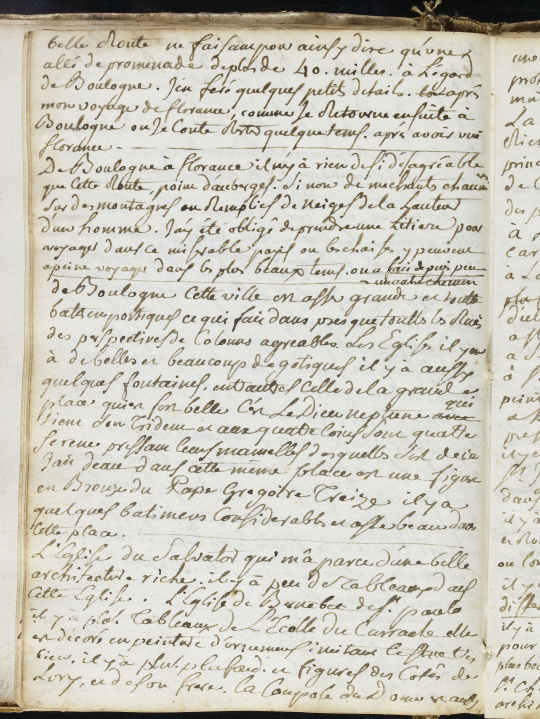 belle Route ne faisant pour ainsy dire qu'une
allé de promenade de plus de 40. milles. à Legard
de Boulogne. J'en feré quelques petits details. après
mon voyage de florance, comme Je Retourne ensuite à
Boulogne ou Je Conte Rester quelque tems. apres avoir vu
florance.
De Boulogne à florance il n'y à rien de si desagréable
que cette Route, point d'auberges. Si non de mechants chemins
sur des montagnes ou Remplies de neiges de la hauteur
d'un homme. J'ay été obligé de prendre une Litiere pour
voyager dans ce miserable pays ou les chaises y peuvent
apeine voyager dans les plus beaux tems. on a fait depuis peu
un autre chemin
de Boulogne Cette ville est assé grande et toutte
batie en portiques ce qui fait dans presque touttes les Rues
des perspectives de Colonnes agreables. Les Eglises il y en
à de belles et beaucoup de gotiques il y a aussy
quelques fontaines. entautres Celle de la grande
place qui est fort belle C'est Le Dieu neptune qui
tient son Tridend et aux quatre Coins sont quatre
serene pressant leurs mamelles desquelles sort de ie
Jait deau dans cette meme place est une figure
en Bronze du Pape Gregoire Treize il y a
quelques batimens Considerables et assé beau dans
Cette place.
L'Eglise du Salvator qui m'a parue d'une belle
architecture riche. il y à peu de Tableaux dans
Cette Eglise. L'Eglise de de St. paulo
il y à plus. Tableaux de L'Ecolle du Carrache elle
est decoré en peinture d'ornemens imitant le stuc
il y à plus. plafond. et figures des Cotés de
et de son frere. La Coupole du Dome